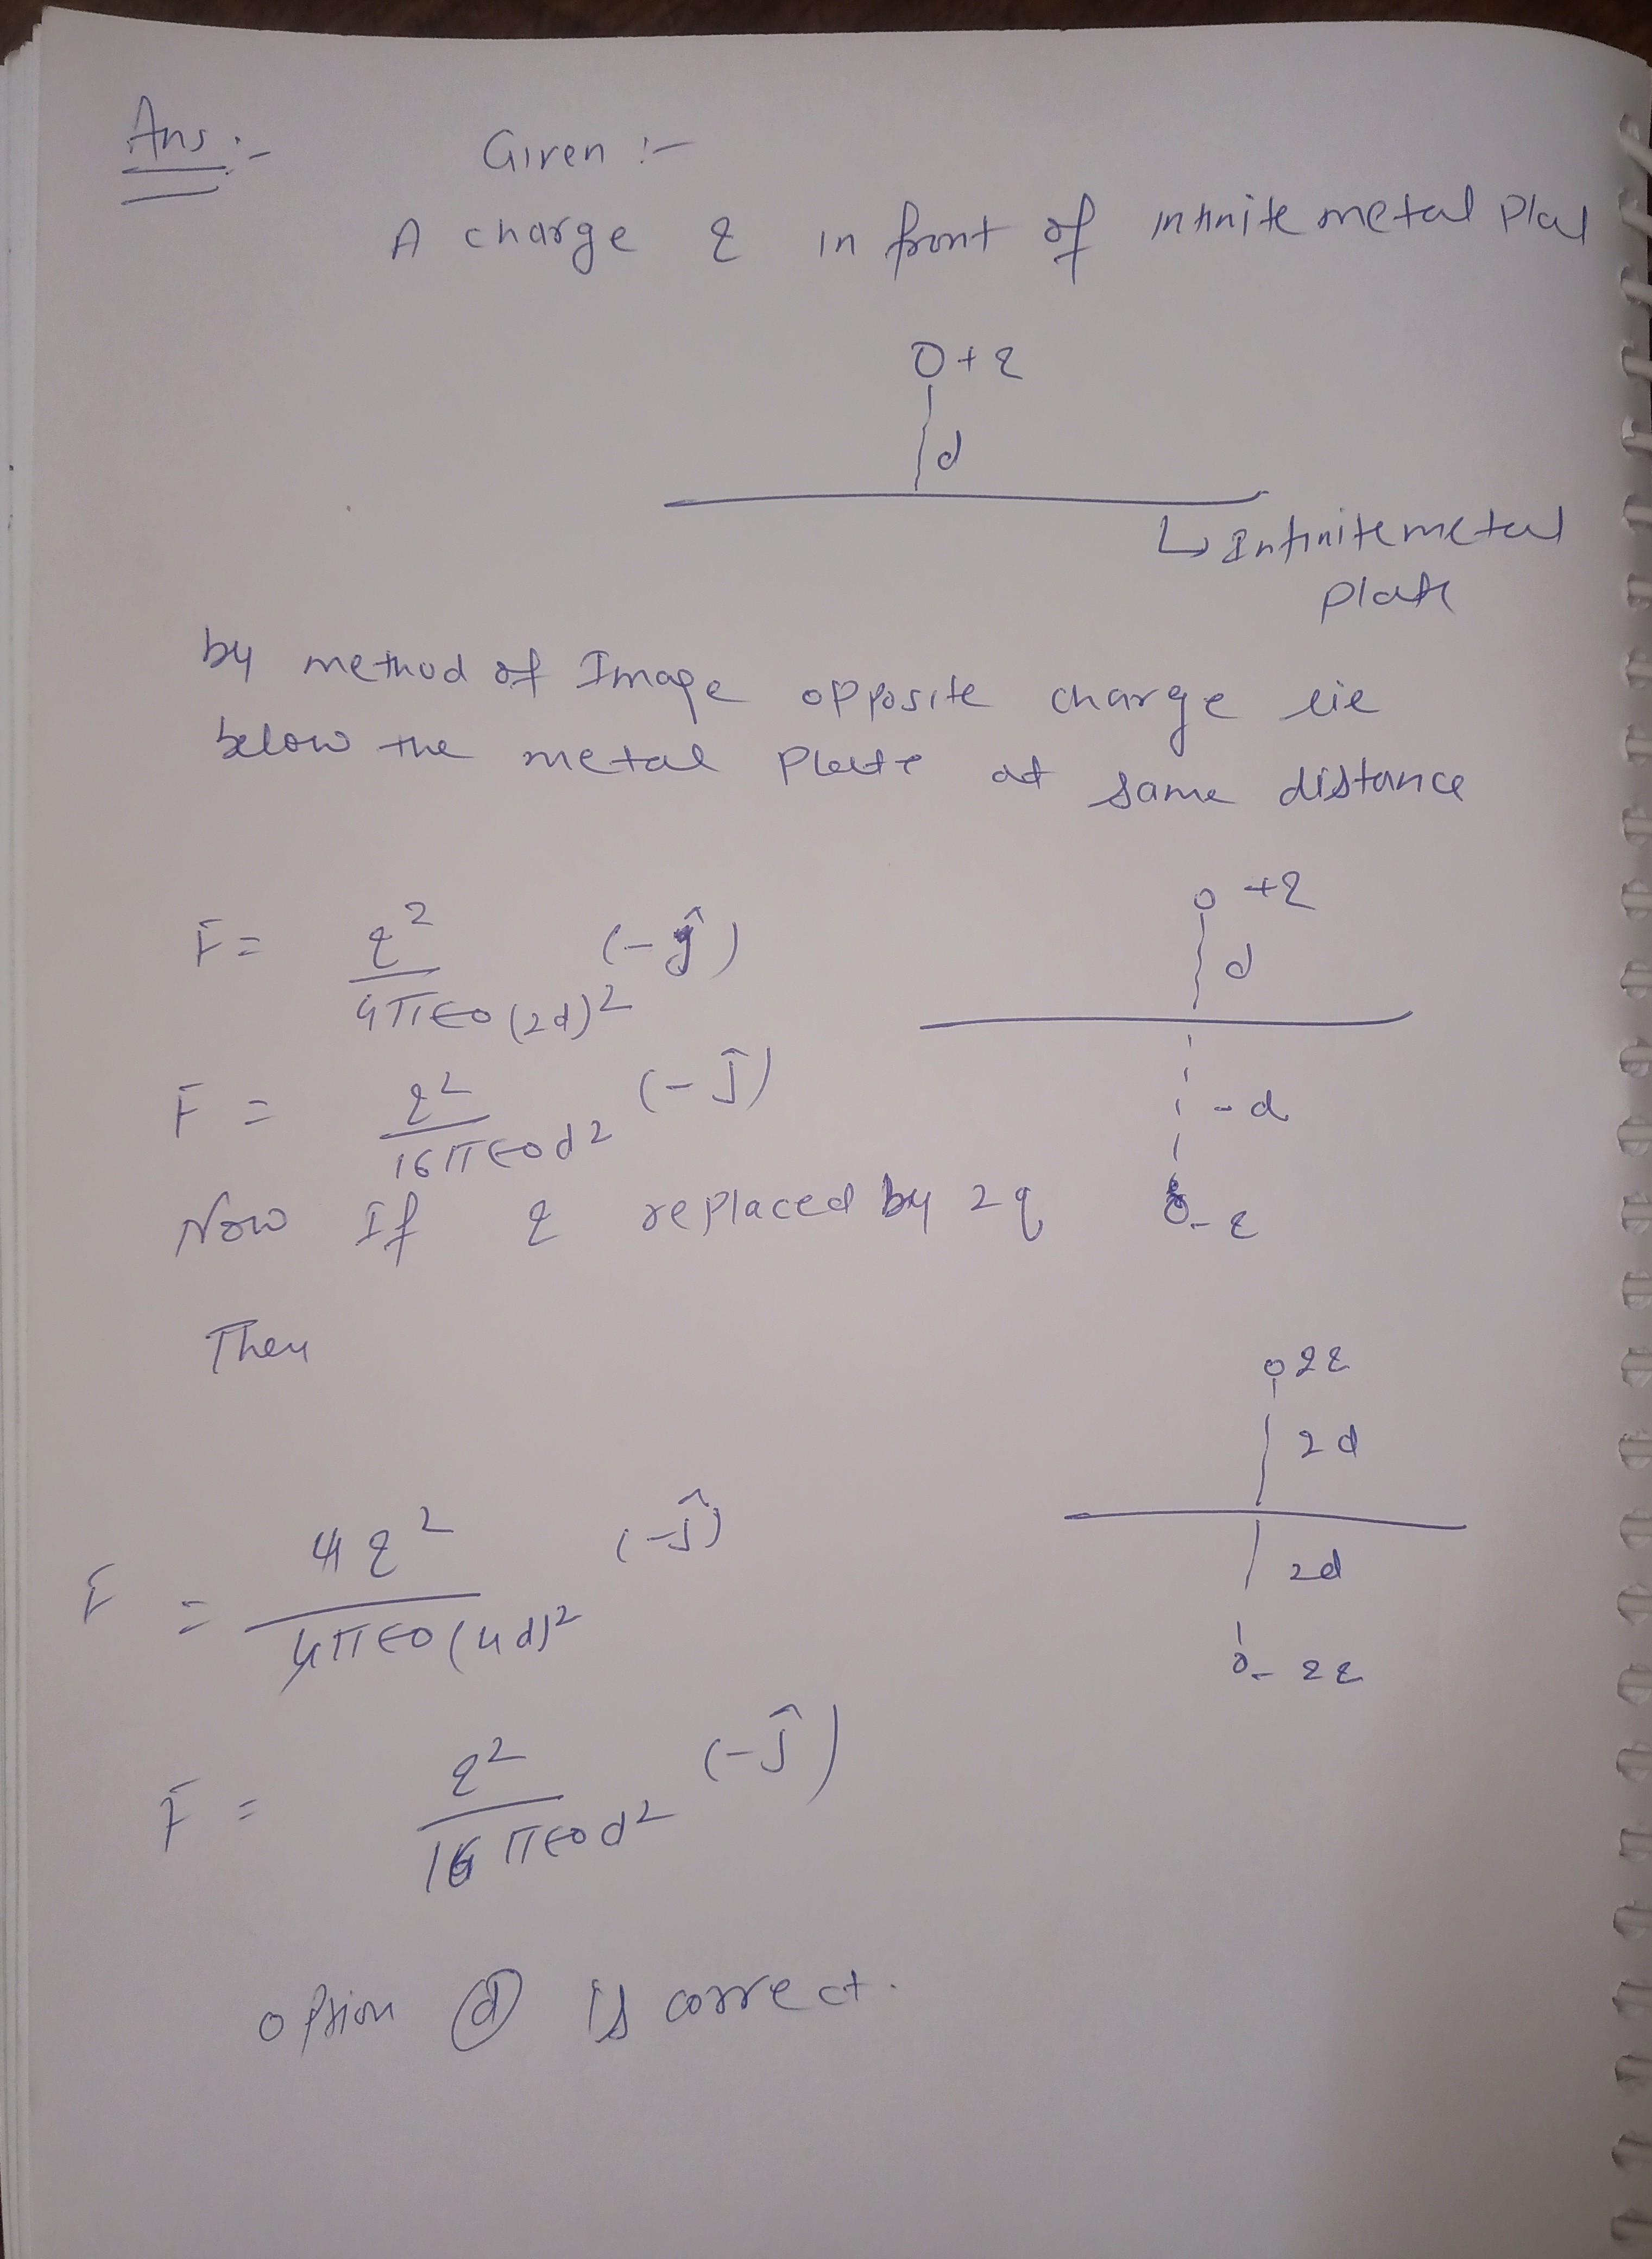 Ans :-
Given :-
A charge q in front of infinite metal Plat
+q
d
↳ Infinite metal
plate
by method of Image opposite charge lie
below the metal Plate at same distance
+q
F = q² / 4π∈0 (2d)² (-ĵ)
d
F = q² / 16π∈0d² (-ĵ)
-d
Now If q replaced by 2q
-q
Then
2q
2d
F = 4q² / 4π∈0 (4d)² (-ĵ)
2d
-2q
F = q² / 16π∈0d² (-ĵ)
option (d) is correct.